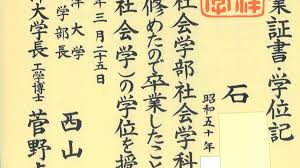 業証書・学位記
石
昭和五十年
社会学部社会学科
修めたので卒業したこと
社会学)の学位を授
年三月二十五日
洋大学
学部長 西山
大学長 工学博士 菅野